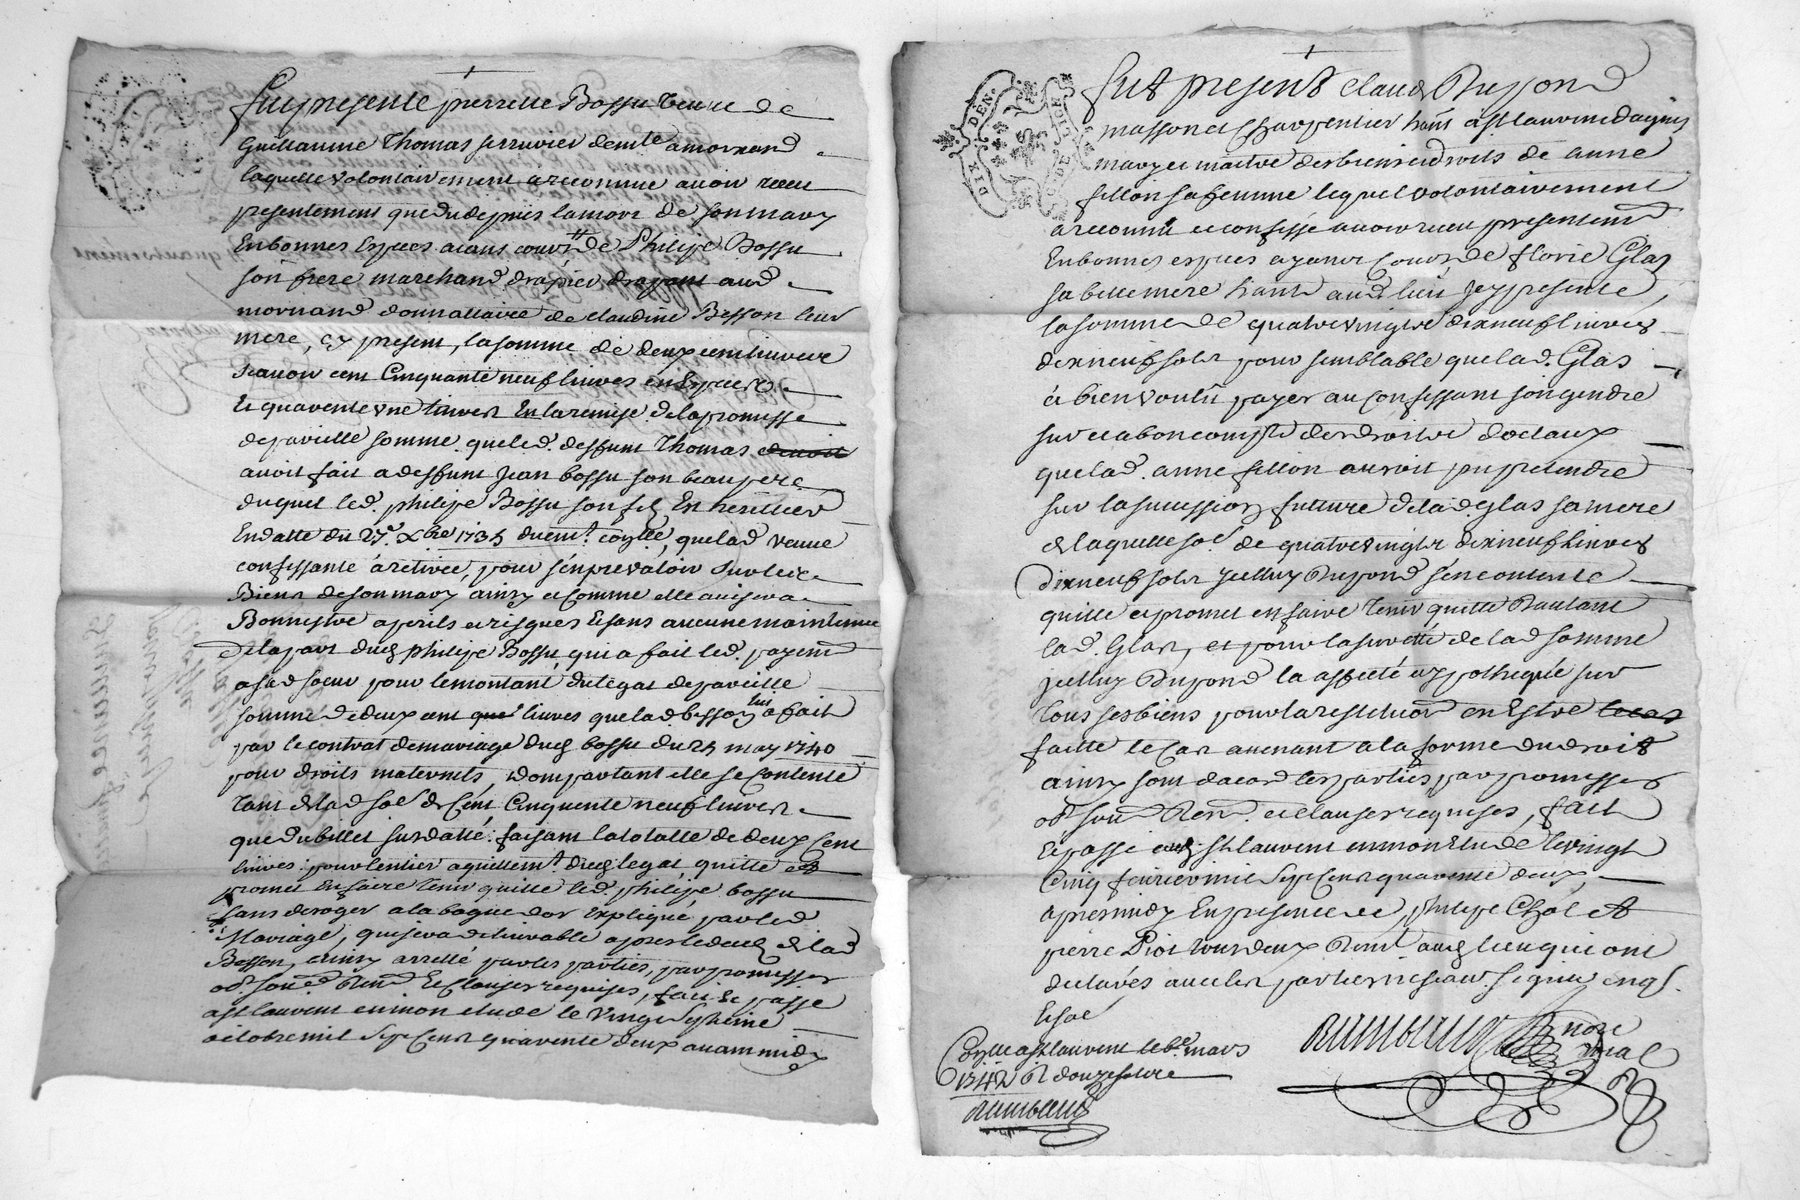 Fut presente pierrette Bossu veuve de
Guillaume Thomas serruvier demte a mornand
laquelle volontairement a reconnue avoir receu
presentement que du depuis la mort de son mary
En bonnes Especes aiant cours de Philipe Bossu
son frere marchand drapier drayant aud
mornand donnattaire de claudine Besson leur
mere, cy present, la somme de deux cent livres
scavoir cent Cinquante neuf livres en Especes
Et quarente une livres En la remise de la promesse
de pareille somme que led. deffunt Thomas devoit
avoit fait a deffunt Jean bossu son beau pere
duquel led. philipe Bossu son fils En heritier
En datte du 27e Xbre 1735 duemt. coñllé, que lad veuve
confessante a retirée, pour s'en prevaloir sur les
Biens de son mary ainsy et comme elle avisera
Bonnestre a perils et risques Et sans aucune maintenue
De la part dud philipe Bossu, qui a fait led. payemt
a sad soeur pour le montant du legat de pareille
somme de deux cent livres que lad besson luy a fait
par le contrat de mariage dud bossu du 25 may 1740
pour droits maternels, dont partant elle se Contente
tant de lad soe de Cent Cinquente neuf livres
que du billet susdatté faisant la totalle de deux Cent
livres pour l'entier aquittemt. dud legat, quitte et
promet En faire tenir quitte led. philipe bossu
sans deroger a la bague d'or Expliqué par led
Mariage, qui sera delivrable apres le deces de lad
Besson, ainsy arretté par les parties, par promesses
obs. soum. Ren. Et Clauses requises, fait Et passé
a st laurent en mon etude le vingt septieme
octobre mil Sept Cent quarente deux avant midy
Fut present Claude Dupond
masson et charpentier habt a st laurent dagny
mary et maitre des biens et droits de anne
fillon sa femme lequel volontairement
a reconnu et confessé avoir receu presentemt
En bonnes especes ayant Cours de florie Glas
sa belle mere habte aud lieu Jcy presente,
la somme de quatrevingt dixneuf livres
dixneuf sols pour semblable que lad. Glas
à bien voulu payer au Confessant son gendre
sur et a bon compte des droits dotaux
que lad. anne fillon auroit pu pretendre
sur la sucession future de lad. Glas sa mere
de laquelle soe. de quatrevingt dixneuf Livres
Dixneuf sols Jcelluy Dupond s'en contente
quitte et promet en faire tenir quitte Dautant
lad. Glas, et pour la sureté de lad somme
Jcelluy Dupond la affecté et ypothequé sur
tous ses biens pour la restitution en Estre
faitte le Cas avenant a la forme du droit
ainsy sont dacord les parties par promesses
obs. soum. Ren. et clauses requises, fait
Et passé aud st laurent en mon Etude le vingt
Cinq fevrier mil Sept Cent quarente deux,
apres midy En presence de philipe Chol et
pierre Piot tous deux aud lieu qui ont
declarés avec les parties ne scav. signer enqs.
Et soe
Conlle a st laurent le 6e. mars
1742 R douze sols